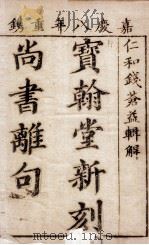 嘉慶八年重鐫
仁和錢蒼益輯解
寶翰堂新刻
尚書離句